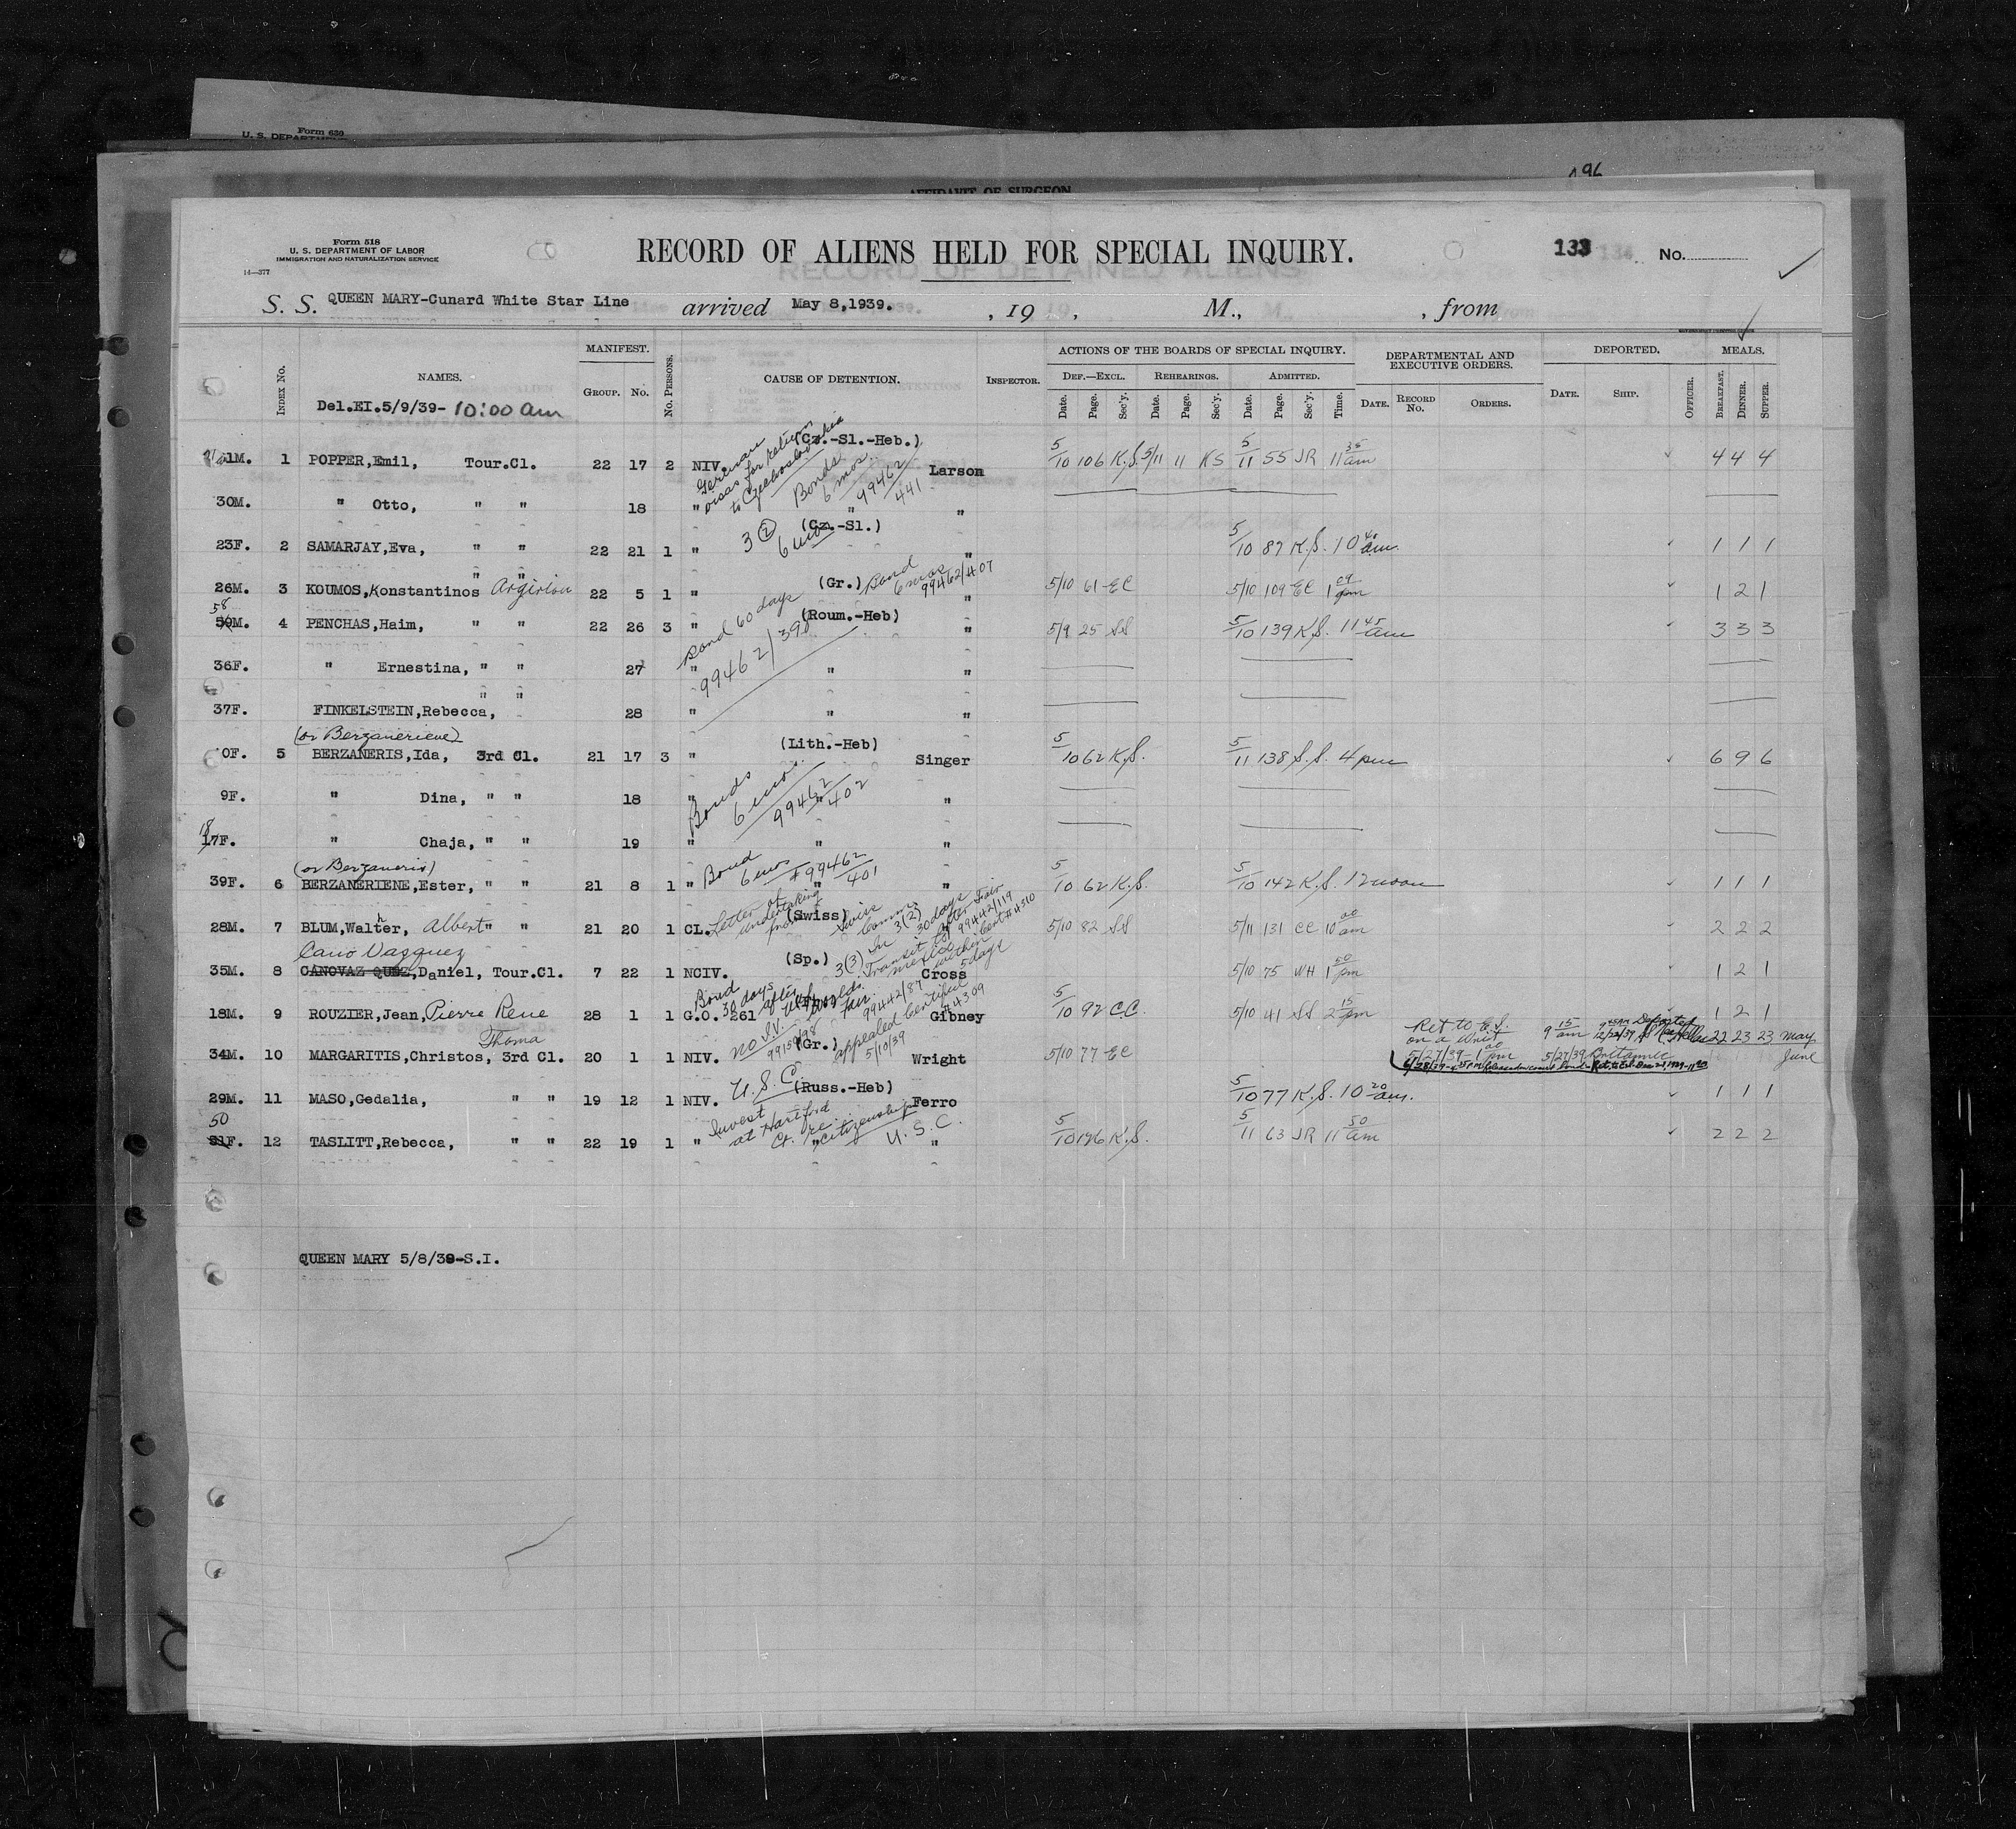 Form 630
U. S. DEPARTMENT
AFFIDAVIT OF SURGEON
196
Form 518
U. S. DEPARTMENT OF LABOR
IMMIGRATION AND NATURALIZATION SERVICE
14—377
RECORD OF ALIENS HELD FOR SPECIAL INQUIRY.
133 134 No.
RECORD OF DETAINED ALIENS
S. S. QUEEN MARY-Cunard White Star Line arrived May 8,1939. , 19 , M., , from
INDEX No. NAMES. MANIFEST. GROUP. No. No. PERSONS. CAUSE OF DETENTION. INSPECTOR. ACTIONS OF THE BOARDS OF SPECIAL INQUIRY. DEF.—EXCL. Date. Page. Sec'y. REHEARINGS. Date. Page. Sec'y. ADMITTED. Date. Page. Sec'y. Time. DEPARTMENTAL AND EXECUTIVE ORDERS. DATE. RECORD No. ORDERS. DEPORTED. DATE. SHIP. OFFICER. MEALS. BREAKFAST. DINNER. SUPPER.
Del.EI.5/9/39- 10:00 am
1M. 1 POPPER,Emil, Tour.Cl. 22 17 2 NIV. (Cz.-Sl.-Heb.) Larson 5/10 106 K.S. 5/11 11 KS 5/11 55 JR 11 35 am 4 4 4
German visas for return to Czechoslovakia
Bonds 6 mos. 99462/441
30M. " Otto, " " 18 " " "
(Cz.-Sl.)
23F. 2 SAMARJAY,Eva, " " 22 21 1 " 3 (2) 6 mos " 5/10 87 K.S. 10 40 am. 1 1 1
" "
26M. 3 KOUMOS,Konstantinos Argiriou 22 5 1 " (Gr.) Bond 6 mos 99462/407 " 5/10 61 EC 5/10 109 EC 1 09 pm 1 2 1
58
59M. 4 PENCHAS,Haim, " " 22 26 3 " (Roum.-Heb) " 5/9 25 SS 5/10 139 K.S. 11 45 am 3 3 3
Bond 60 days 99462/390
36F. " Ernestina, " " 27 " " "
" "
37F. FINKELSTEIN,Rebecca, 28 " " "
(or Berzaneriene)
0F. 5 BERZANERIS,Ida, 3rd Cl. 21 17 3 " (Lith.-Heb) Singer 5/10 62 K.S. 5/11 138 S.S. 4 pm 6 9 6
9F. " Dina, " " 18 " " "
Bonds 6 mos. 99462/402
18
17F. " Chaja, " " 19 " " "
(or Berzaneris)
39F. 6 BERZANERIENE,Ester, " " 21 8 1 " Bond 6 mos #99462/401 " " 5/10 62 K.S. 5/10 142 K.S. 12 noon 1 1 1
28M. 7 BLUM,Walther, Albert " " 21 20 1 CL. (Swiss) " 5/10 82 SS 5/11 131 CC 10 00 am 2 2 2
Letter of undertaking from Swiss Comm. 3(2) 30 days after Fair 99442/119 Cert #4310
Cano Vazquez
35M. 8 CANOVAZ QUEZ,Daniel, Tour.Cl. 7 22 1 NCIV. (Sp.) Cross 5/10 75 WH 1 50 pm 1 2 1
3(3) In Transit to Mexico within 5 days
18M. 9 ROUZIER,Jean, Pierre Rene 28 1 1 G.O. 261 Gibney 5/10 92 C.C. 5/10 41 SS 2 15 pm 1 2 1
Bond 30 days after World's Fair. 99442/87 #4309
Thoma
34M. 10 MARGARITIS,Christos, 3rd Cl. 20 1 1 NIV. (Gr.) Wright 5/10 77 EC 22 23 23 May
no I.V. appealed 5/10/39
Ret to E.S. on a Unit 9 15 am 12/22/39
5/27/39 - 1 00 pm 5/27/39 Britannic June
29M. 11 MASO,Gedalia, " " 19 12 1 NIV. U.S.C. (Russ.-Heb) Ferro 5/10 77 K.S. 10 20 am. 1 1 1
50
51F. 12 TASLITT,Rebecca, " " 22 19 1 " " " 5/10 196 K.S. 5/11 63 JR 11 50 am 2 2 2
Invest at Hartford Ct. re. citizenship U.S.C.
QUEEN MARY 5/8/39-S.I.